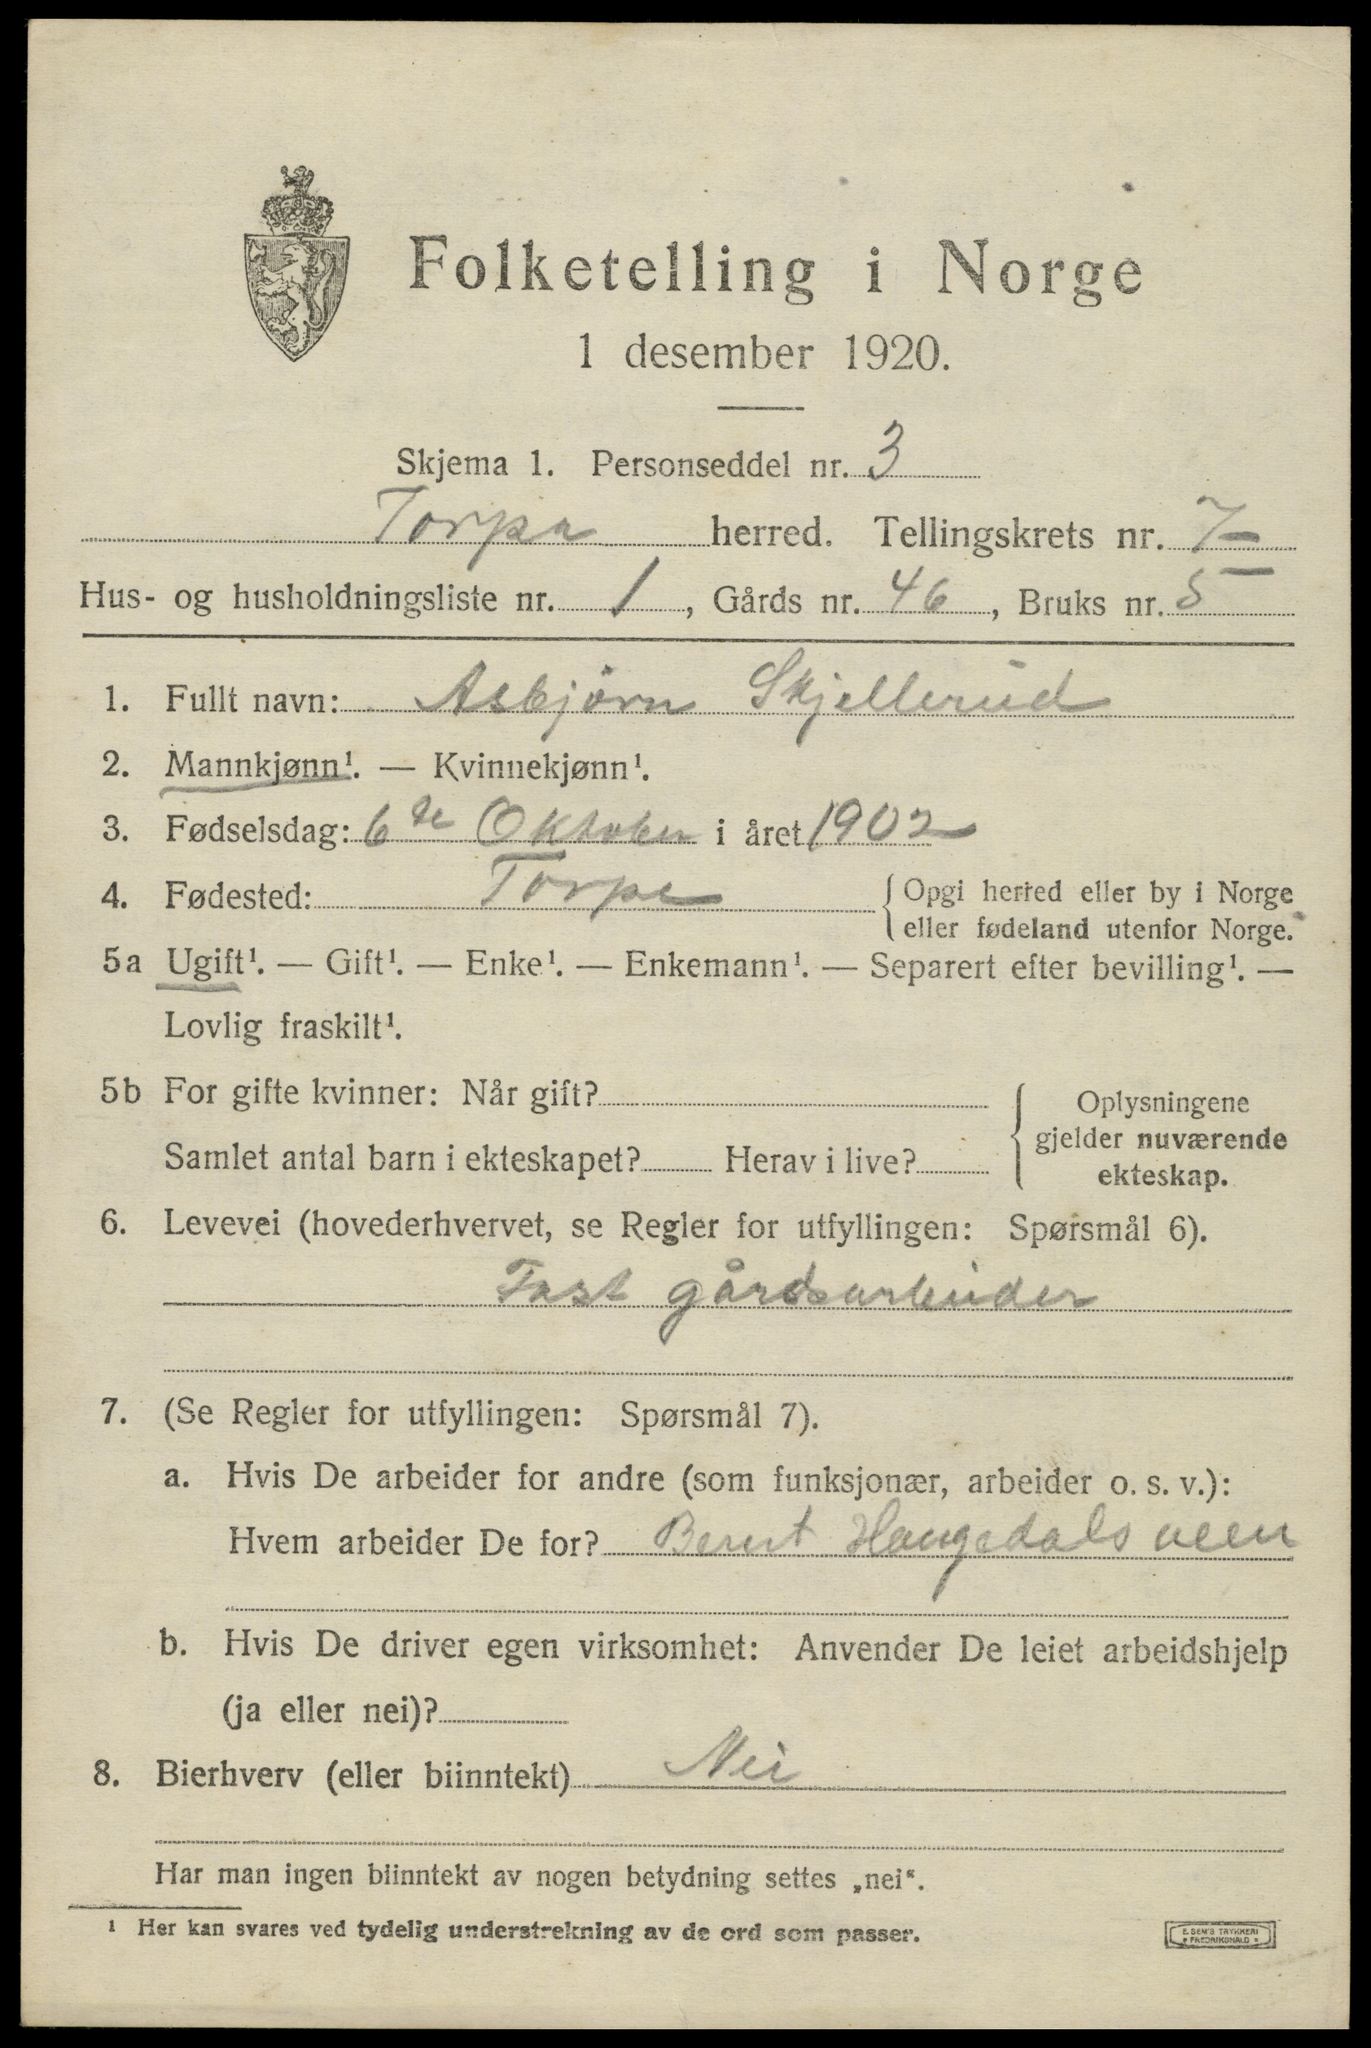 Folketelling i Norge
1 desember 1920.
Skjema 1. Personseddel nr. 3
Torpa herred. Tellingskrets nr. 7
Hus- og husholdningsliste nr. 1, Gårds nr. 46, Bruks nr. 5
1. Fullt navn: Asbjörn Skjellerud
2. Mannkjønn¹. — Kvinnekjønn¹.
3. Fødselsdag: 6te Oktober i året 1902
4. Fødested: Torpa {Opgi herred eller by i Norge
eller fødeland utenfor Norge.
5a Ugift¹. — Gift¹. — Enke¹. — Enkemann¹. — Separert efter bevilling¹. —
Lovlig fraskilt¹.
5b For gifte kvinner: Når gift?
Samlet antal barn i ekteskapet? Herav i live?
{Oplysningene
gjelder nuværende
ekteskap.
6. Levevei (hovederhvervet, se Regler for utfyllingen: Spørsmål 6).
Fast gårdsarbeider
7. (Se Regler for utfyllingen: Spørsmål 7).
a. Hvis De arbeider for andre (som funksjonær, arbeider o. s. v.):
Hvem arbeider De for? Bernt
b. Hvis De driver egen virksomhet: Anvender De leiet arbeidshjelp
(ja eller nei)?
8. Bierhverv (eller biinntekt) Nei
Har man ingen biinntekt av nogen betydning settes „nei“.
¹ Her kan svares ved tydelig understrekning av de ord som passer.
E. SEM'S TRYKKERI
FREDRIKSHALD